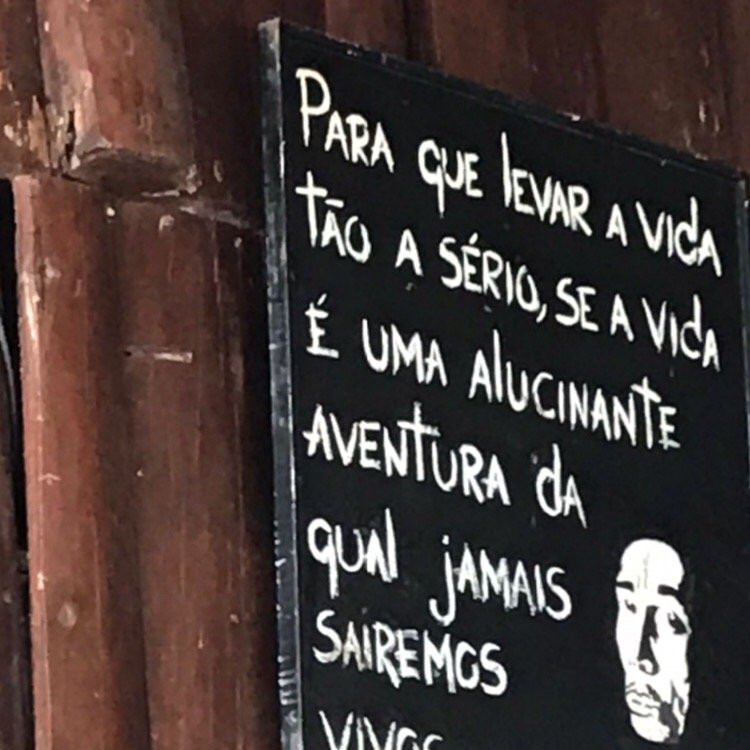 PARA QUE lEVAR A VIdA
tÃO A SÉRIO, SE A VIdA
É UMA AlUCINANtE
AVENtURA dA
QUAl jAMAIS
SAIREMOS
VIVOS